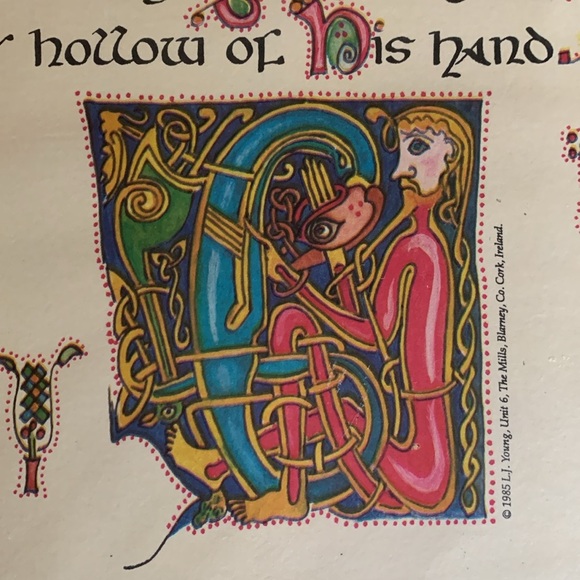 hollow of his hand.
© 1985 L.J. Young, Unit 6, The Mills, Blarney, Co. Cork, Ireland.